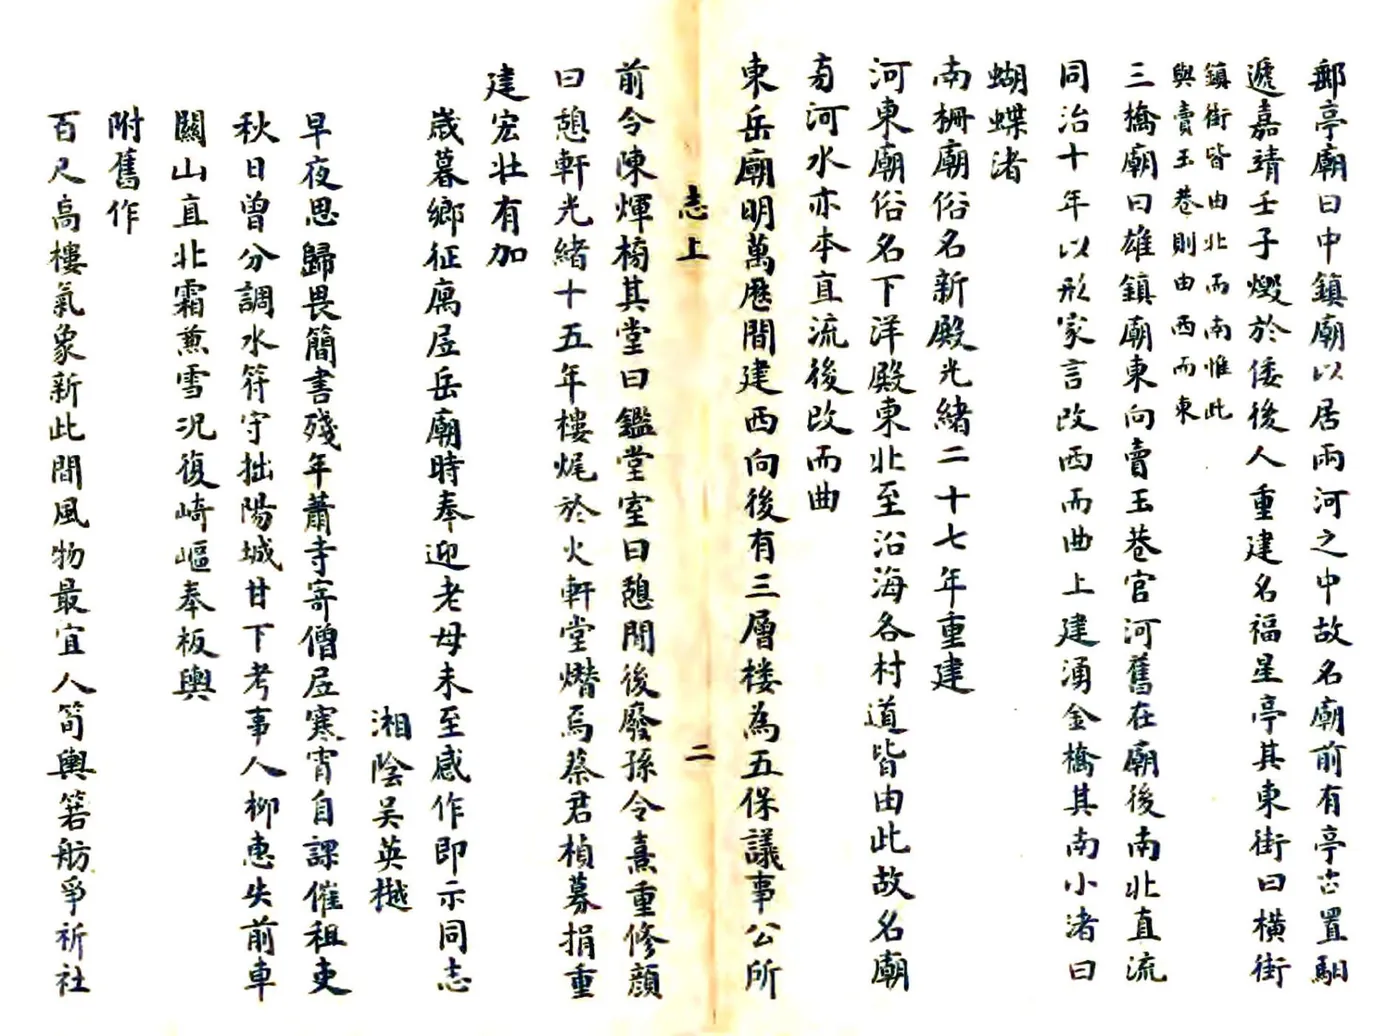 郵亭廟曰中鎮廟以居兩河之中故名廟前有亭古置馹
遞嘉靖壬子燬於倭後人重建名福星亭其東街曰橫街
鎮街皆由北而南惟此
與賣玉巷則由西而東
三橋廟曰雄鎮廟東向賣玉巷官河舊在廟後南北直流
同治十年以形家言改西而曲上建湧金橋其南小渚曰
蝴蝶渚
南柵廟俗名新殿光緒二十七年重建
河東廟俗名下洋殿東北至沿海各村道皆由此故名廟
有河水亦本直流後改而曲
東岳廟明萬厯間建西向後有三層楼為五保議事公所
志上
二
前令陳煇椅其堂曰鑑堂室曰憩閒後廢孫令熹重修顔
曰憩軒光緒十五年樓燬於火軒堂熸焉蔡君楨募捐重
建宏壯有加
嵗暮鄉征寓居岳廟時奉迎老母未至感作即示同志
湘陰吴英樾
早夜思歸畏簡書殘年蕭寺寄僧居寒宵自課催租吏
秋日曾分調水符守拙陽城甘下考事人柳惠失前車
關山直北霜蒸雪况復崎嶇奉板輿
附舊作
百尺高樓氣象新此間風物最宜人筍輿箬舫爭祈社